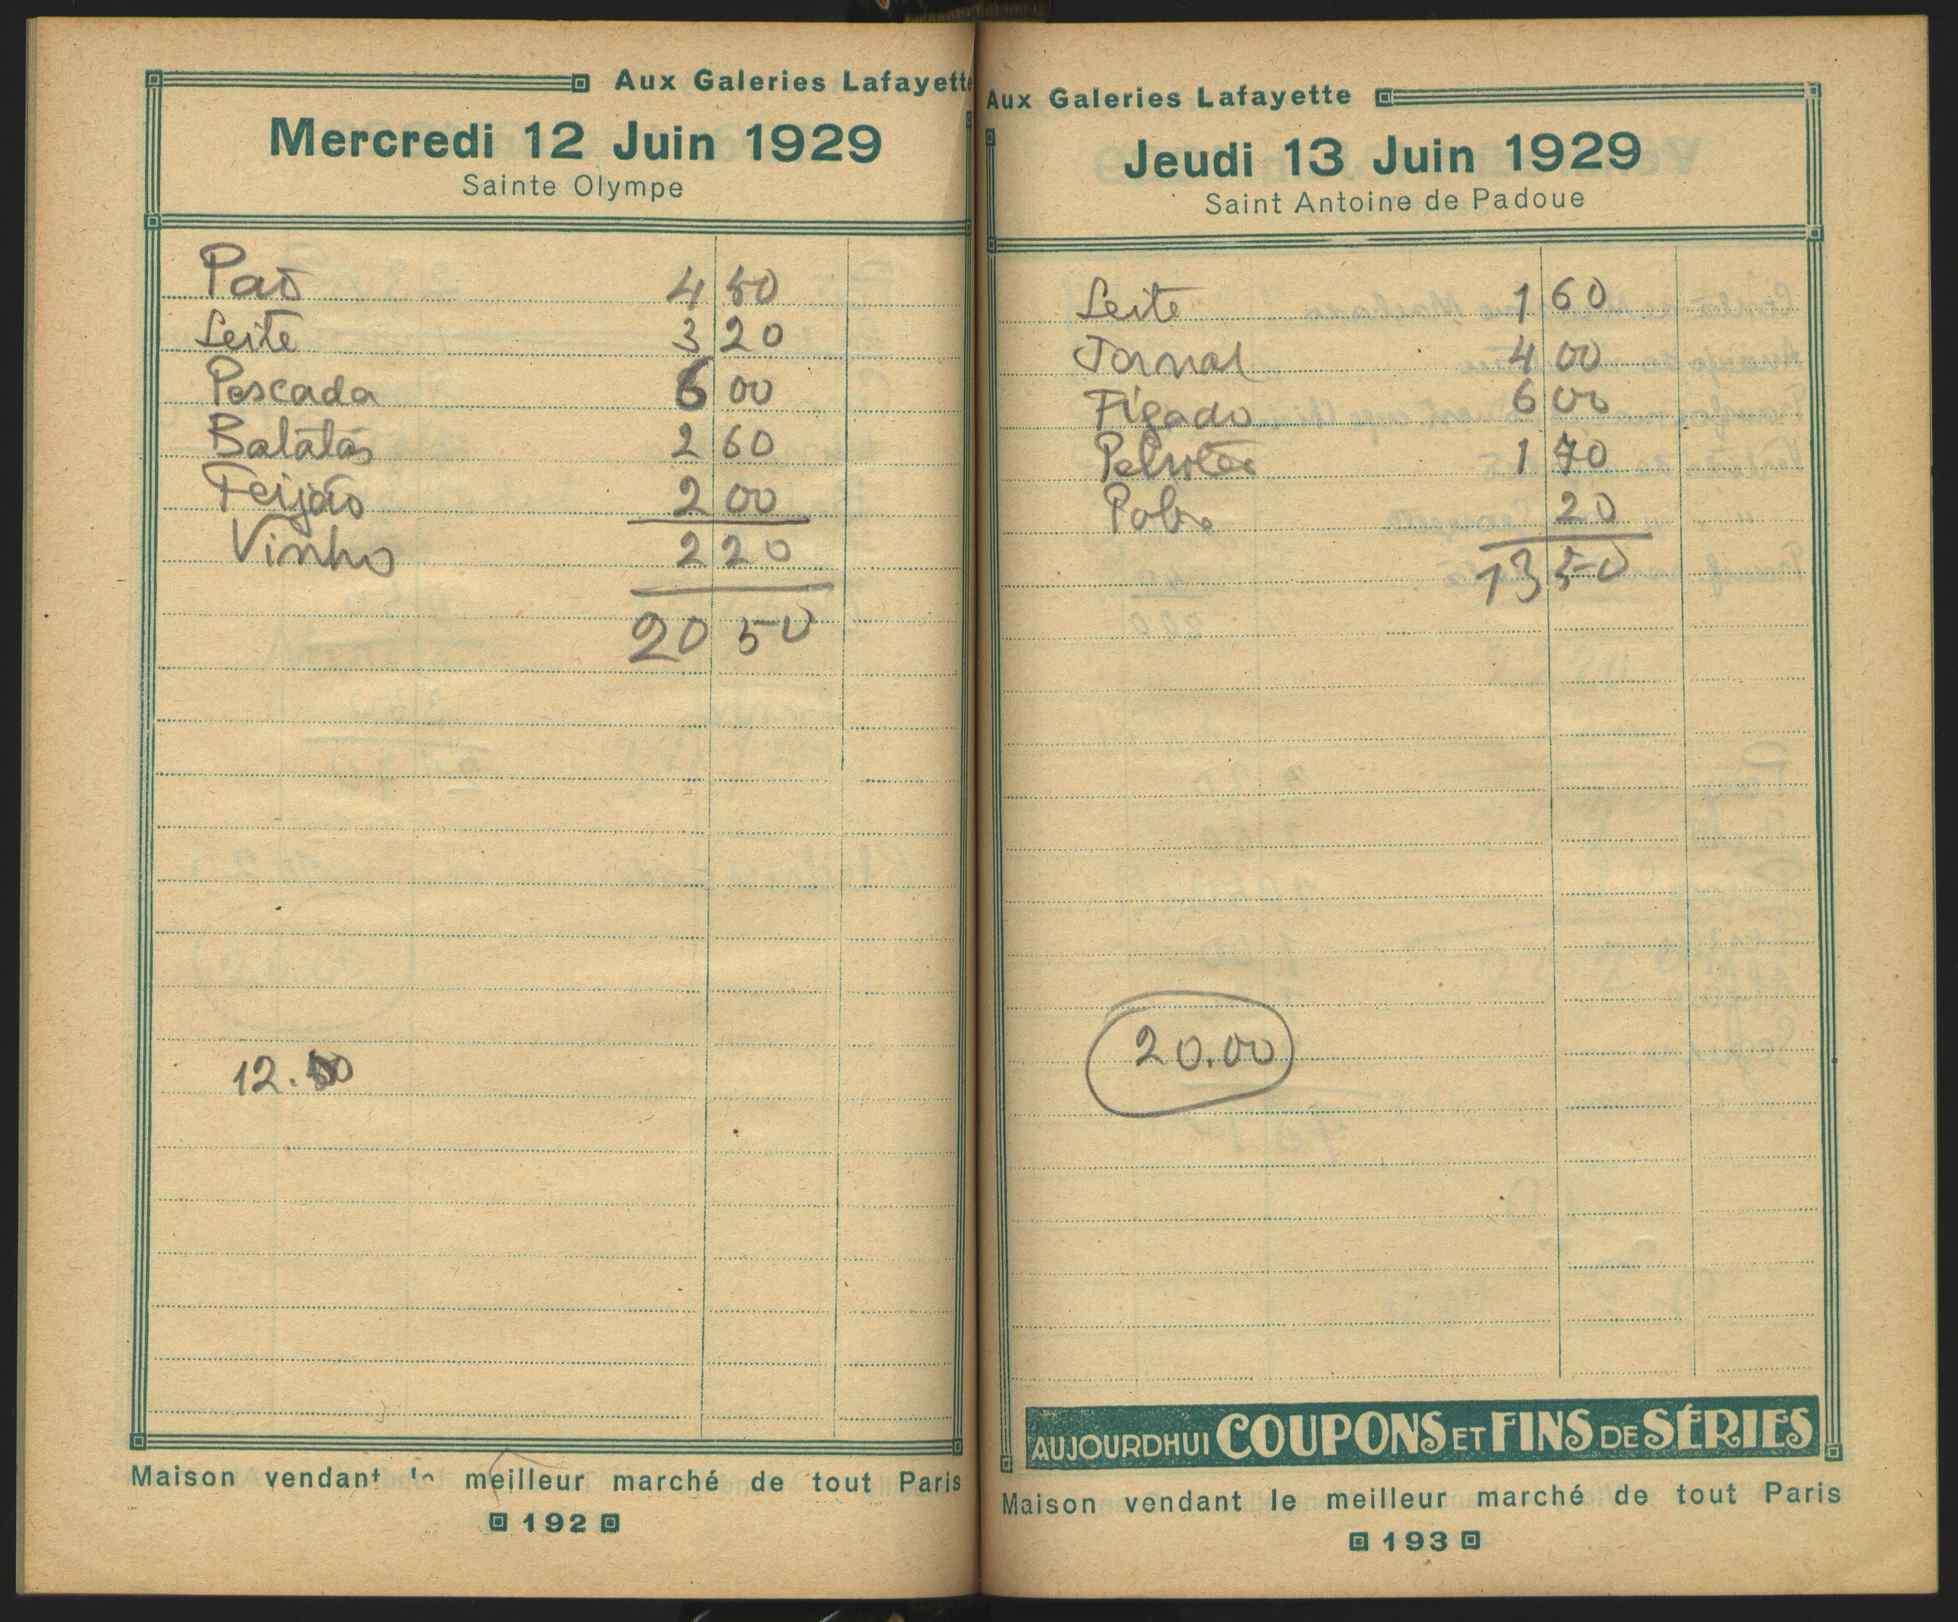 Aux Galeries Lafayette
Mercredi 12 Juin 1929
Sainte Olympe
Pão 4 50
Leite 3 20
Pescada 6 00
Batatas 2 60
Feijão 2 00
Vinho 2 20
20 50
12.50
Maison vendant le meilleur marché de tout Paris
192
Aux Galeries Lafayette
Jeudi 13 Juin 1929
Saint Antoine de Padoue
Leite 1 60
Jornal 4 00
Fígado 6 00
1 70
Pobre 20
13 50
20.00
AUJOURDHUI COUPONS ET FINS DE SÉRIES
Maison vendant le meilleur marché de tout Paris
193